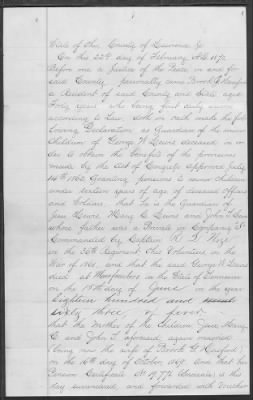 State of Ohio County of Lawrence ss
On this 22nd day of February A.D. 1870
Before me a Justice of the Peace in and for
said County personally came Enoch G. Hanford
a Resident of said County and State aged
Forty years who being first duly sworn
according to Law doth on oath make the fol-
lowing Declaration as Guardian of the minor
Children of George W. Lewis deceased in or-
der to obtain the benefits of the provisions
made by the Act of Congress approved July
14th 1862 Granting pensions to minor children
under sixteen years of age of deceased officers
and Soldiers that he is the Guardian of
Jane Lewis, Mary C. Lewis and John T. Lewis
whose father was a Private in Company
Commanded by Captain
in the 36th Regiment Ohio Volunteers in the
War of 1861 and that the said George W. Lewis
died at Murfreesboro in the State of Tennessee
on the day of June in the year
Eighteen hundred and
sixty three of fever
that the Mother of the Children Jane Mary
C. and John T. aforesaid again married
(being now the wife of Enoch G. Hanford)
on the 16th day of October 1867 And that her
Pension Certificate No 19,776 is this
day surrendered and forwarded with Voucher